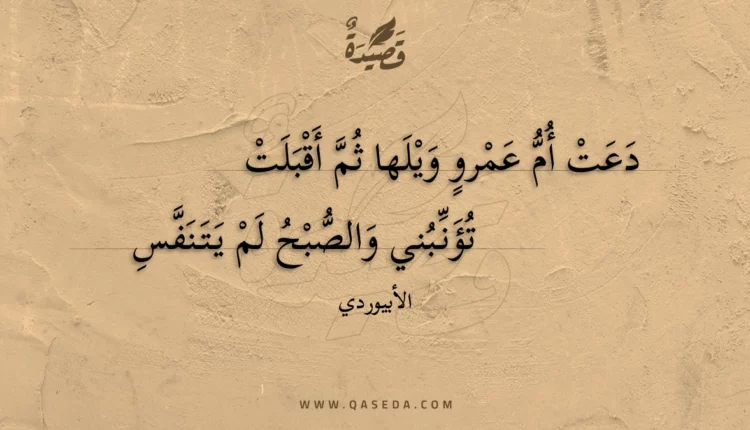 قَصِيدَةٌ
دَعَتْ أُمُّ عَمْروٍ وَيْلَها ثُمَّ أَقْبَلَتْ
تُؤَنِّبُني وَالصُّبْحُ لَمْ يَتَنَفَّسِ
الأبيوردي
WWW.QASEDA.COM